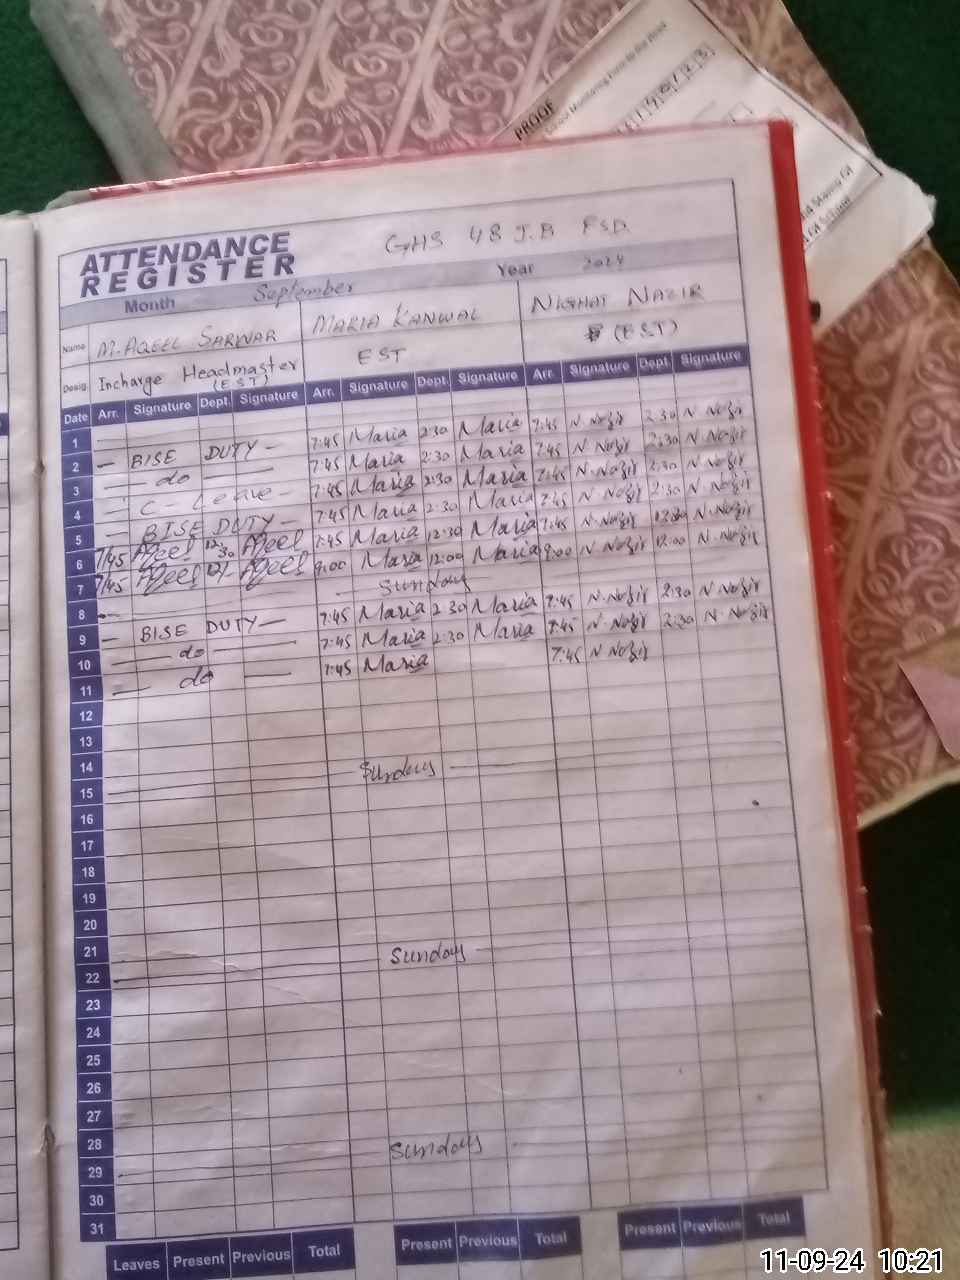 PROOF
ATTENDANCE
REGISTER
GHS 48 J.B FSD
Month September Year 2024
Name M. AQEEL SARWAR MARIA KANWAL NIGHAT NAZIR
Desig. Incharge Headmaster (EST) EST (EST)
Date Arr. Signature Dept. Signature Arr. Signature Dept. Signature Arr. Signature Dept. Signature
1
2 — BISE DUTY — 7:45 Maria 2:30 Maria 7:45 N. Nazir 2:30 N. Nazir
3 — do — 7:45 Maria 2:30 Maria 7:45 N. Nazir 2:30 N. Nazir
4 — C - Leave - 7:45 Maria 2:30 Maria 7:45 N. Nazir 2:30 N. Nazir
5 — BISE DUTY — 7:45 Maria 2:30 Maria 7:45 N. Nazir 2:30 N. Nazir
6 7/45 Aqeel 12:30 Aqeel 7:45 Maria 12:30 Maria 7:45 N. Nazir 12:30 N. Nazir
7 7/45 Aqeel 12/- Aqeel 9:00 Maria 12:00 Maria 9:00 N. Nazir 12:00 N. Nazir
8 — Sunday
9 — BISE DUTY — 7:45 Maria 2:30 Maria 7:45 N. Nazir 2:30 N. Nazir
10 — do — 7:45 Maria 2:30 Maria 7:45 N. Nazir 2:30 N. Nazir
11 — do — 7:45 Maria 7:45 N. Nazir
12
13
14
15 Sunday
16
17
18
19
20
21
22 Sunday
23
24
25
26
27
28
29 Sunday
30
31
Leaves Present Previous Total Present Previous Total Present Previous Total
11-09-24 10:21